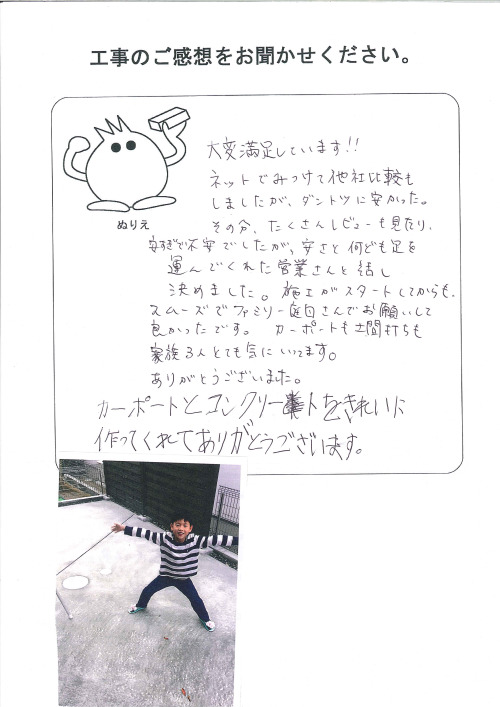 工事のご感想をお聞かせください。
ぬりえ
大変満足しています!!
ネットでみつけて他社比較も
しましたが、ダントツに安かった。
その分、たくさんレビューも見たり、
安すぎで不安でしたが、安さと何ども足を
運んでくれた営業さんと話し
決めました。施工がスタートしてからも、
スムーズでファミリー庭園さんでお願いして
良かったです。カーポートも土間打ちも
家族3人とても気にいってます。
ありがとうございました。
カーポートとコンクリートをきれいに
作ってくれてありがとうございます。